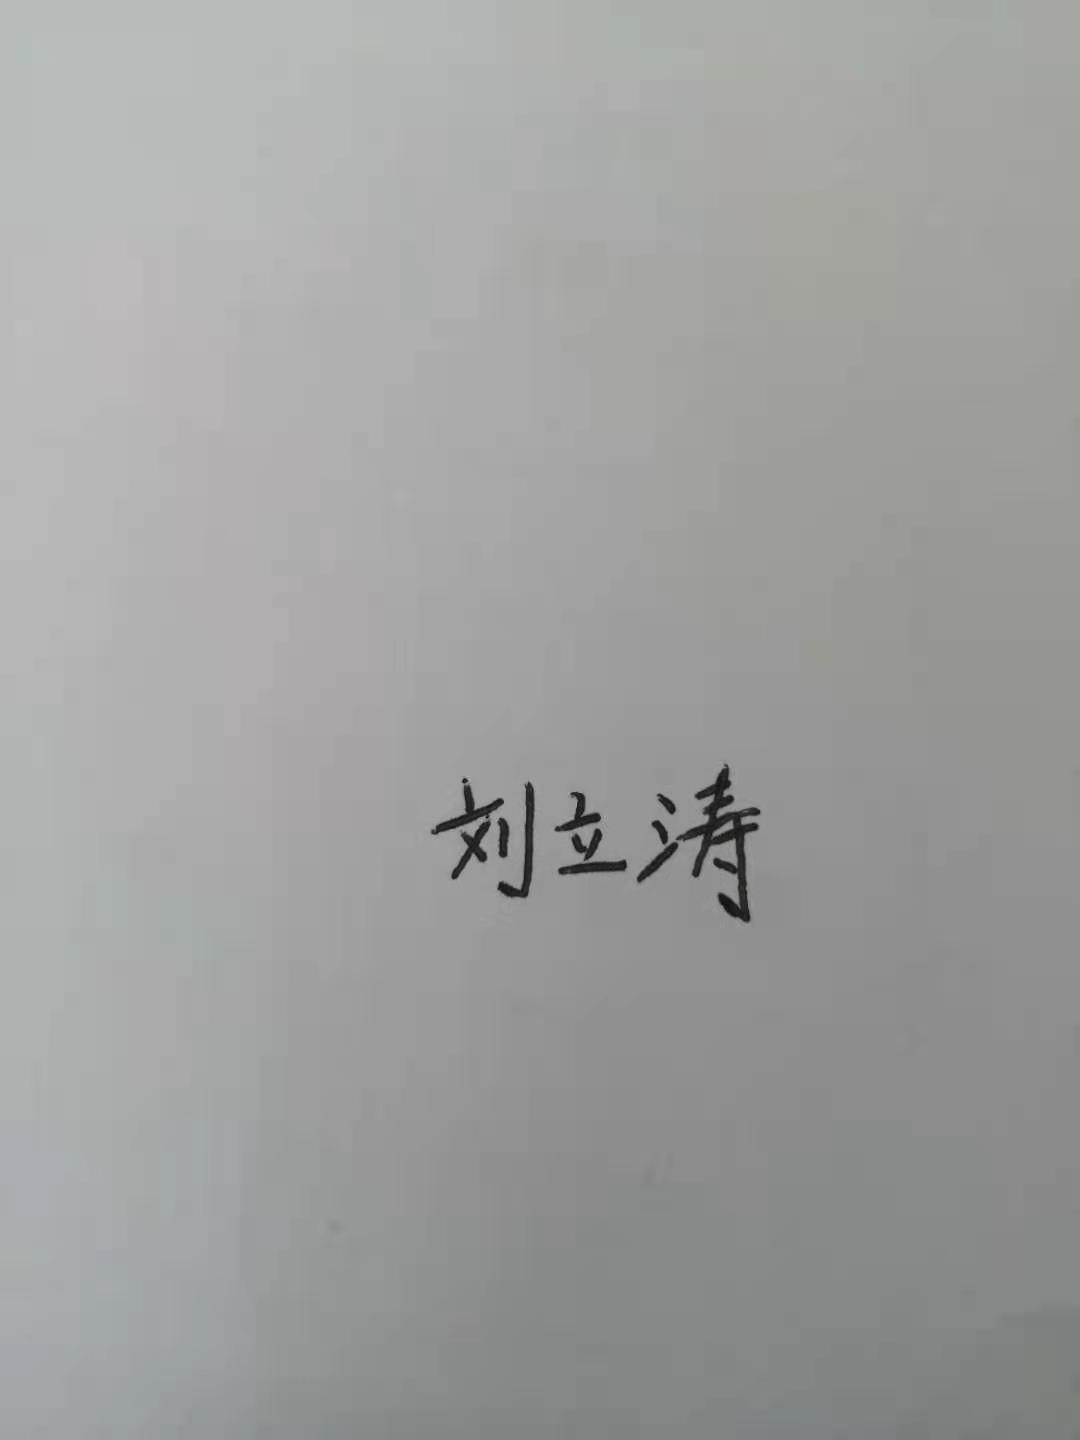 刘立涛